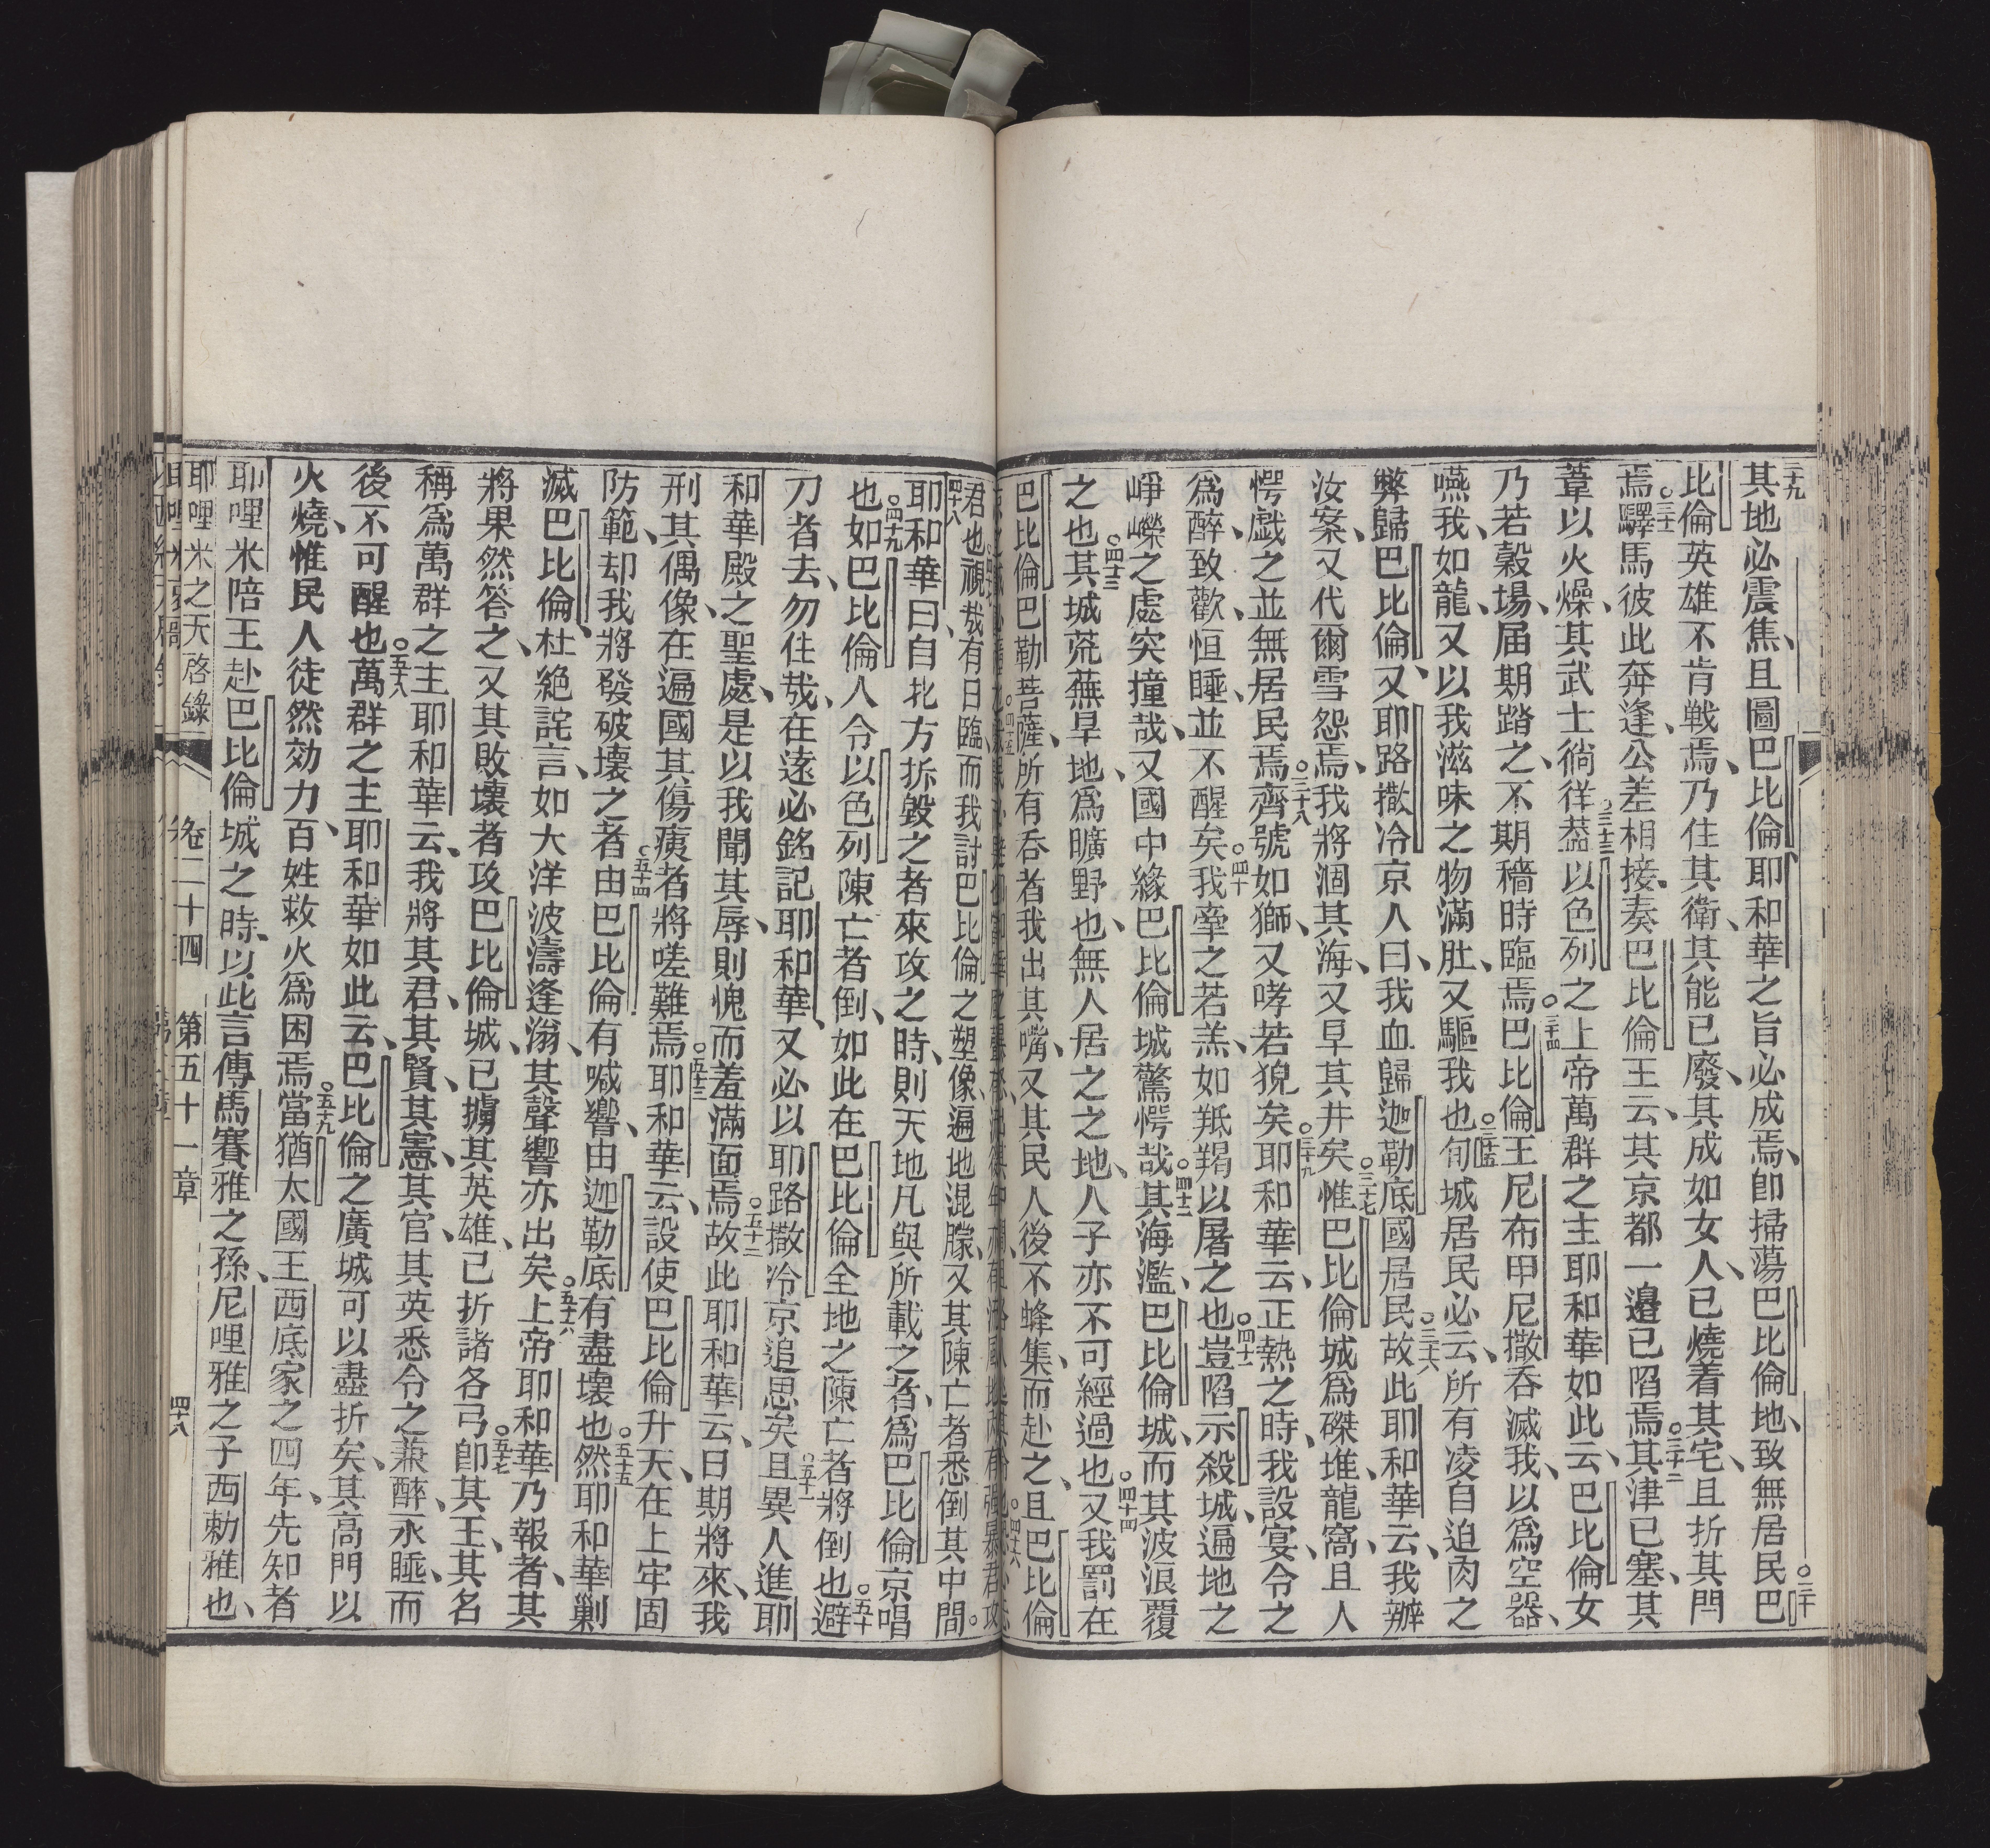 二十九其地必震焦、且圖巴比倫耶和華之旨必成焉、卽掃蕩巴比倫地、致無居民○三十巴
比倫英雄不肯戰焉、乃住其衛、其能已廢、其成如女人、已燒着其宅、且折其門
焉○三十一驛馬彼此奔逢、公差相接、奏巴比倫王云、其京都一邊已陷焉○三十二其津已塞、其
葦以火燥、其武士徜徉○三十三葢以色列之上帝萬群之主耶和華如此云、巴比倫女
乃若穀場、届期踏之、不期穡時臨焉○三十四巴比倫王尼布甲尼撒吞滅我、以爲空器、
嚥我、如龍、又以我滋味之物滿肚、又驅我也○三十五旬城居民必云、所有凌自迫肉之
弊歸巴比倫、又耶路撒冷京人曰、我血歸迦勒底國居民○三十六故此耶和華云、我辦
汝案、又代爾雪怨焉、我將涸其海、又旱其井矣○三十七惟巴比倫城爲磔堆、龍窩、且人
愕戲之並無居民焉○三十八齊號如獅、又哮若猊矣○三十九耶和華云、正熱之時、我設宴、令之
爲醉、致歡、恒睡、並不醒矣○四十我牽之若羔、如羝羯以屠之也○四十一豈陷示殺城、遍地之
崢嶸之處突撞哉、又國中緣巴比倫城驚愕哉○四十二其海濫、巴比倫城、而其波浪覆
之也○四十三其城荒蕪旱地、爲曠野也、無人居之之地、人子亦不可經過也○四十四又我罰在
巴比倫巴勒菩薩、○四十五所有呑者我出其嘴、又其民人後不蜂集、而赴之、且巴比倫
君也○四十七視哉有日臨、而我討巴比倫之塑像、遍地混朦、又其陳亡者悉倒其中間。
四十八耶和華曰、自北方拆毀之者來攻之時、則天地凡與所載之者、爲巴比倫京唱
也○四十九如巴比倫人令以色列陳亡者倒、如此在巴比倫全地之陳亡者將倒也○五十避
刀者去、勿住哉、在遠必銘記耶和華、又必以耶路撒冷京追思矣○五十一且異人進耶
和華殿之聖處、是以我聞其辱、則愧而羞滿面焉○五十二故此耶和華云、日期將來、我
刑其偶像、在遍國其傷痍者將嗟難焉○五十三耶和華云、設使巴比倫升天、在上牢固
防範、却我將發破壞之者○五十四由巴比倫有喊響、由迦勒底有盡壞也○五十五然耶和華剿
滅巴比倫、杜絕詫言、如大洋波濤逢滃、其聲響亦出矣○五十六上帝耶和華乃報者、其
將果然答之、又其敗壞者攻巴比倫城、已擄其英雄、已折諸各弓○五十七卽其王、其名
稱爲萬群之主耶和華云、我將其君、其賢、其憲、其官、其英悉令之兼醉、永睡、而
後不可醒也○五十八萬群之主耶和華如此云、巴比倫之廣城可以盡折矣、其高門以
火燒、惟民人徒然効力、百姓救火爲困焉○五十九當猶太國王西底家之四年、先知者
耶哩米陪王赴巴比倫城之時、以此言傳馬賽雅之孫、尼哩雅之子西勅雅也、
耶哩米之天啓錄 卷二十四 第五十一章 四十八